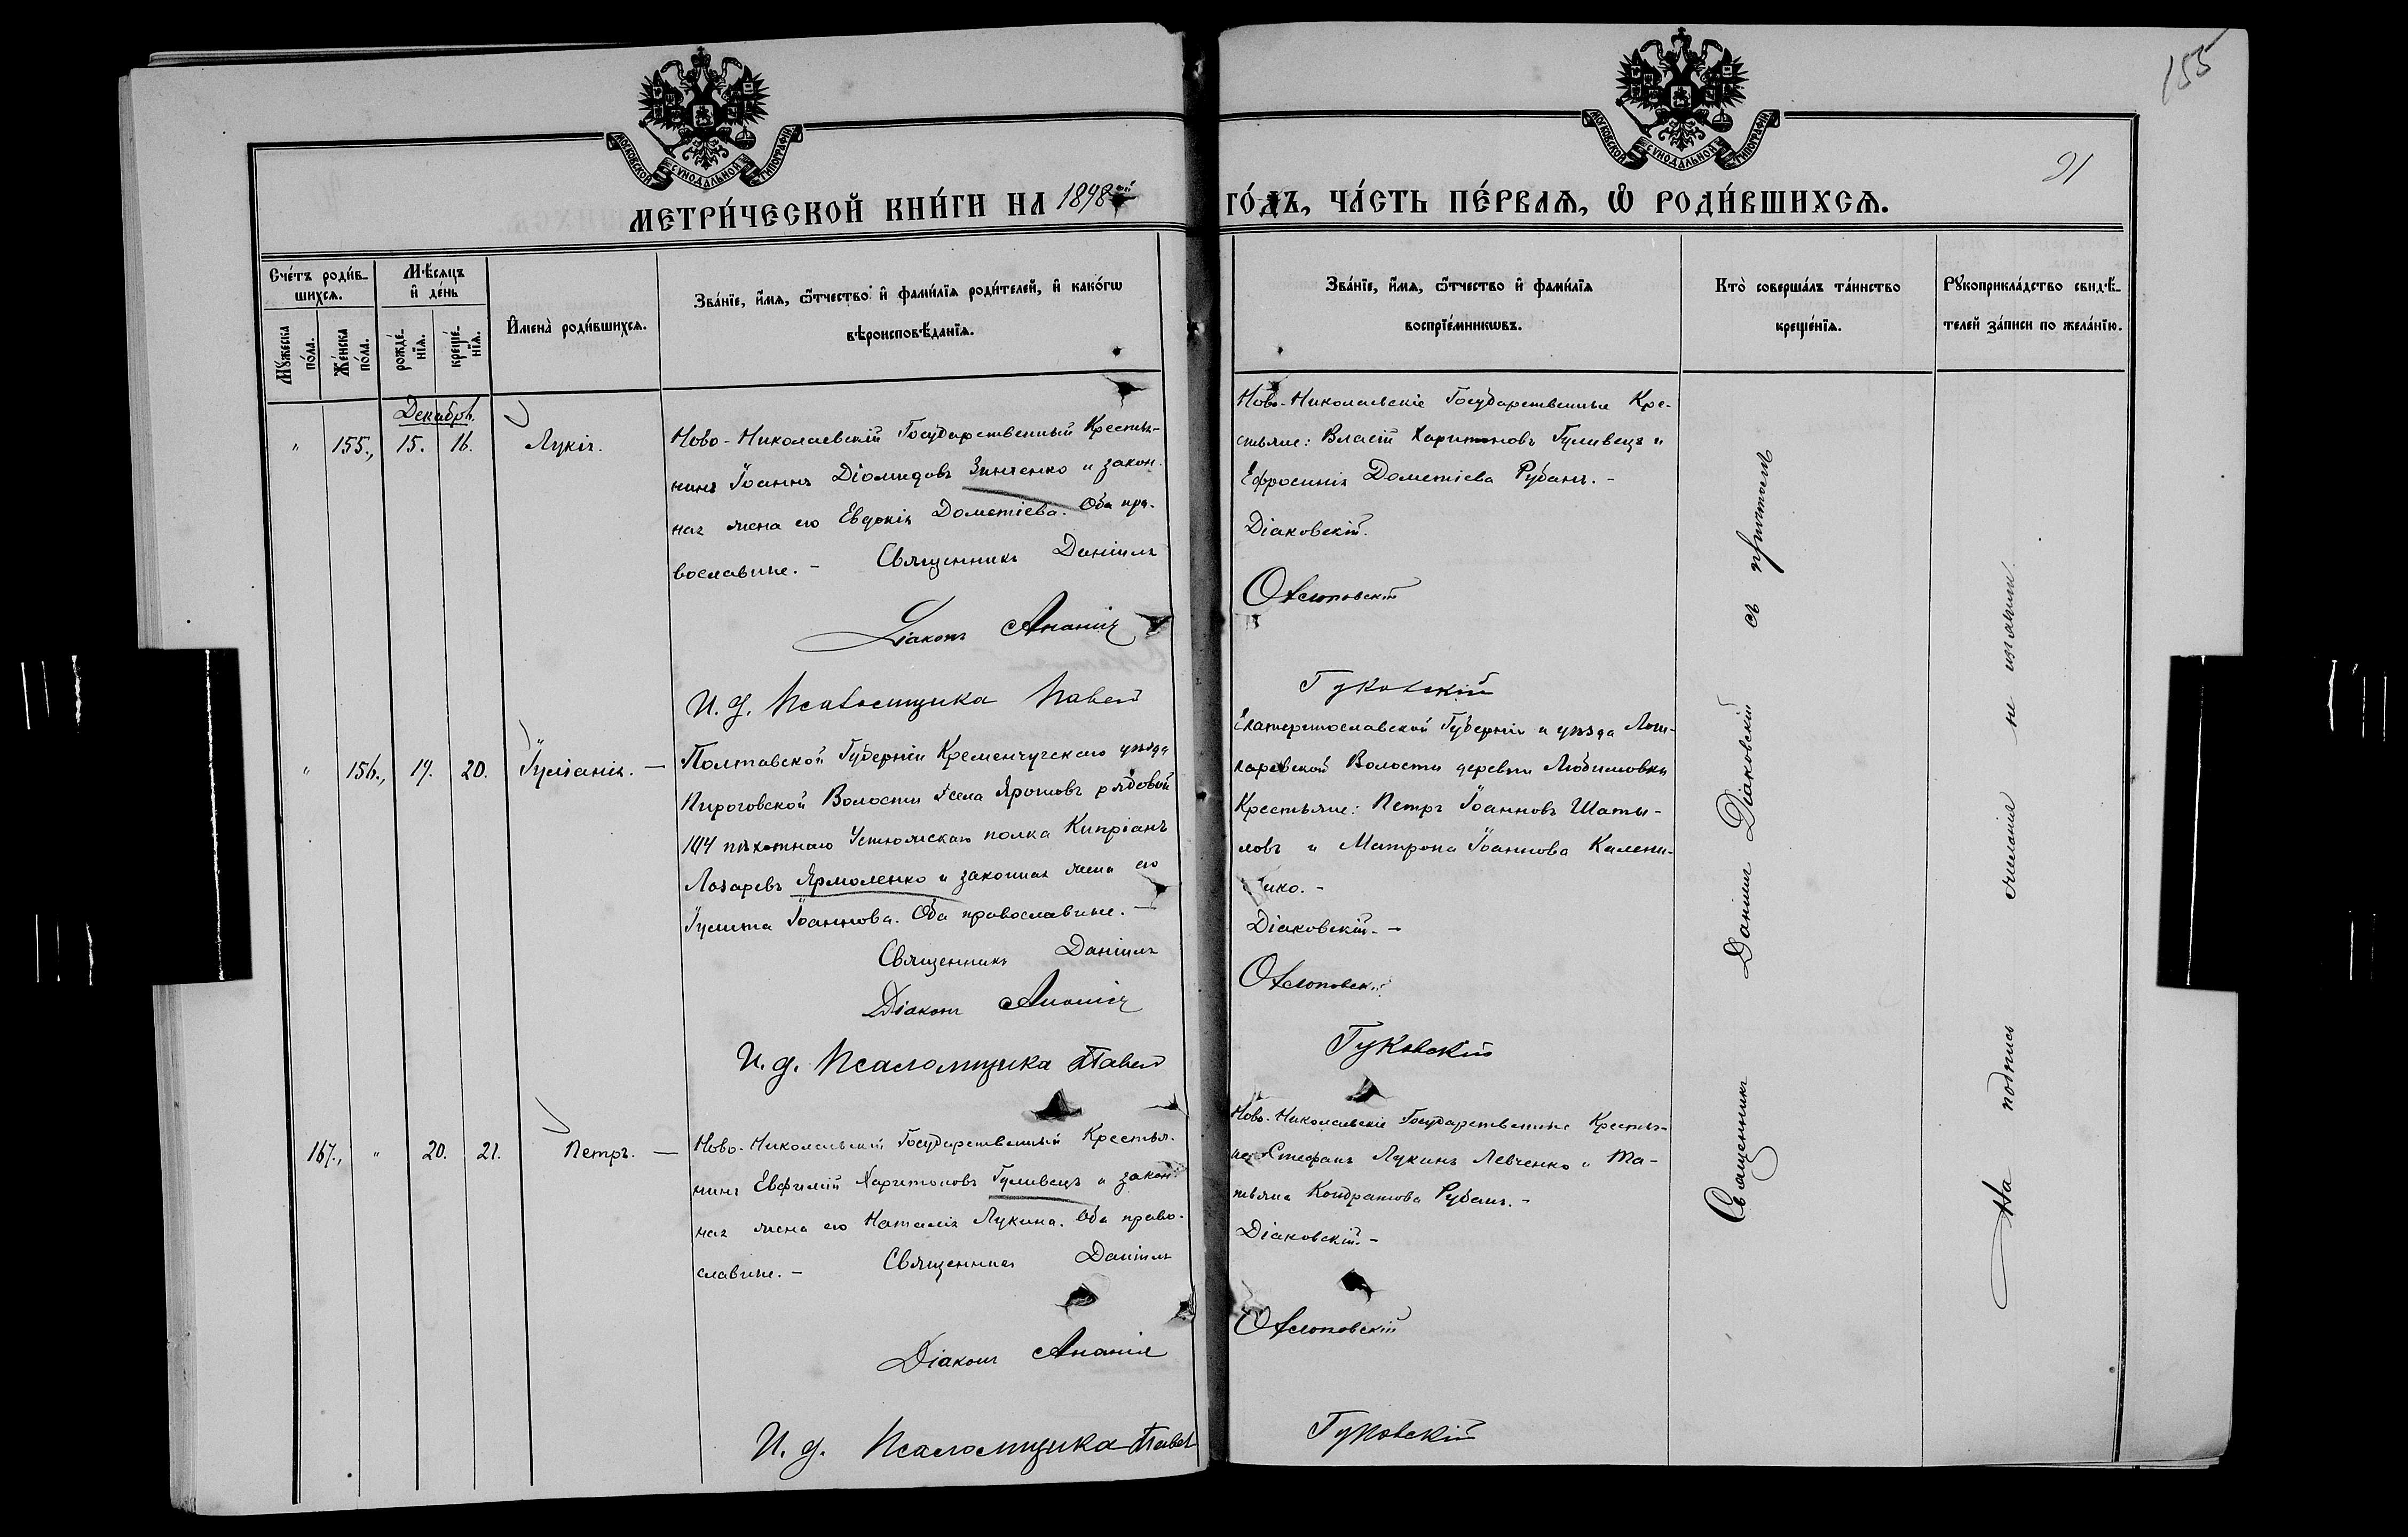 155
91
МОСКОВСКОЙ СѴНОДАЛЬНОЙ ТИПОГРАФІИ
МОСКОВСКОЙ СѴНОДАЛЬНОЙ ТИПОГРАФІИ
МЕТРИ́ЧЕСКОЙ КНИ́ГИ НА 1898й ГО́ДЪ, ЧА́СТЬ ПЕ́РВАѦ, Ѽ РОДИ́ВШИХСѦ.
Сче́тъ роди́в-
шихсѧ.
Мꙋ́жеска
по́ла.
Же́нска
по́ла.
Мѣ́сѧцъ
и҆ де́нь
рожде́-
нїѧ.
креще́-
нїѧ.
И҆мена̀ роди́вшихсѧ.
Зва́нїе, и҆́мѧ, ѻ҆́тчество и҆ фами́лїѧ роди́телей, и҆ како́гѡ
вѣроисповѣ́данїѧ.
Зва́нїе, и҆́мѧ, ѻ҆́тчество и҆ фами́лїѧ
воспрїе́мникѡвъ.
Кто̀ соверша́лъ та́инство
креще́нїѧ.
Рꙋкоприкла́дство свидѣ́-
телей за́писи по жела́нїю.
Декабрь.
" 155., 15. 16. Лукія.
Ново-Николаевскій Государственный Крестья-
нинъ Іоаннъ Діомидовъ Зинченко и закон-
ная жена его Евдокія Дометіева. Оба пра-
вославные. - Священникъ Даніилъ
Діаконъ Ананія
И. д. Псаломщика Павел
Ново-Николаевскіе Государственные Кре-
стьяне: Власій Харитоновъ Гуливецъ и
Ефросинія Дометіева Рубанъ. -
Діаковскій.
Гуковскій
" 156., 19. 20. Іуліанія. -
Полтавской Губерніи Кременчугскаго уѣзда
Пироговской Волости села рядовой
144 пѣхотнаго полка Кипріанъ
Лазаревъ Ярмоленко и законная жена его
Іулита Іоаннова. Оба православные. -
Священникъ Даніилъ
Діаконъ Ананія
И. д. Псаломщика Павел
Екатеринославской Губерніи и уѣзда Лош-
каревской Волости деревни Любимовки
Крестьяне: Петръ Іоанновъ Шаты-
ловъ и Матрона Іоаннова Калени-
Діаковскій. -
Гуковскій
167., " 20. 21. Петръ. -
Ново-Николаевскій Государственный Крестья-
нинъ Евфимій Харитоновъ Гуливецъ и закон-
ная жена его Наталія Лукина. Оба право-
славные. - Священникъ Даніилъ
Діаконъ Ананія
И. д. Псаломщика Павел
Ново-Николаевскіе Государственные Крестья-
не: Стефанъ Лукинъ Левченко и Та-
тьяна Кондратова Рубанъ. -
Діаковскій. -
Гуковскій
Священникъ Даніилъ Діаковскій съ причтомъ
На подпись желанія не изъявили.